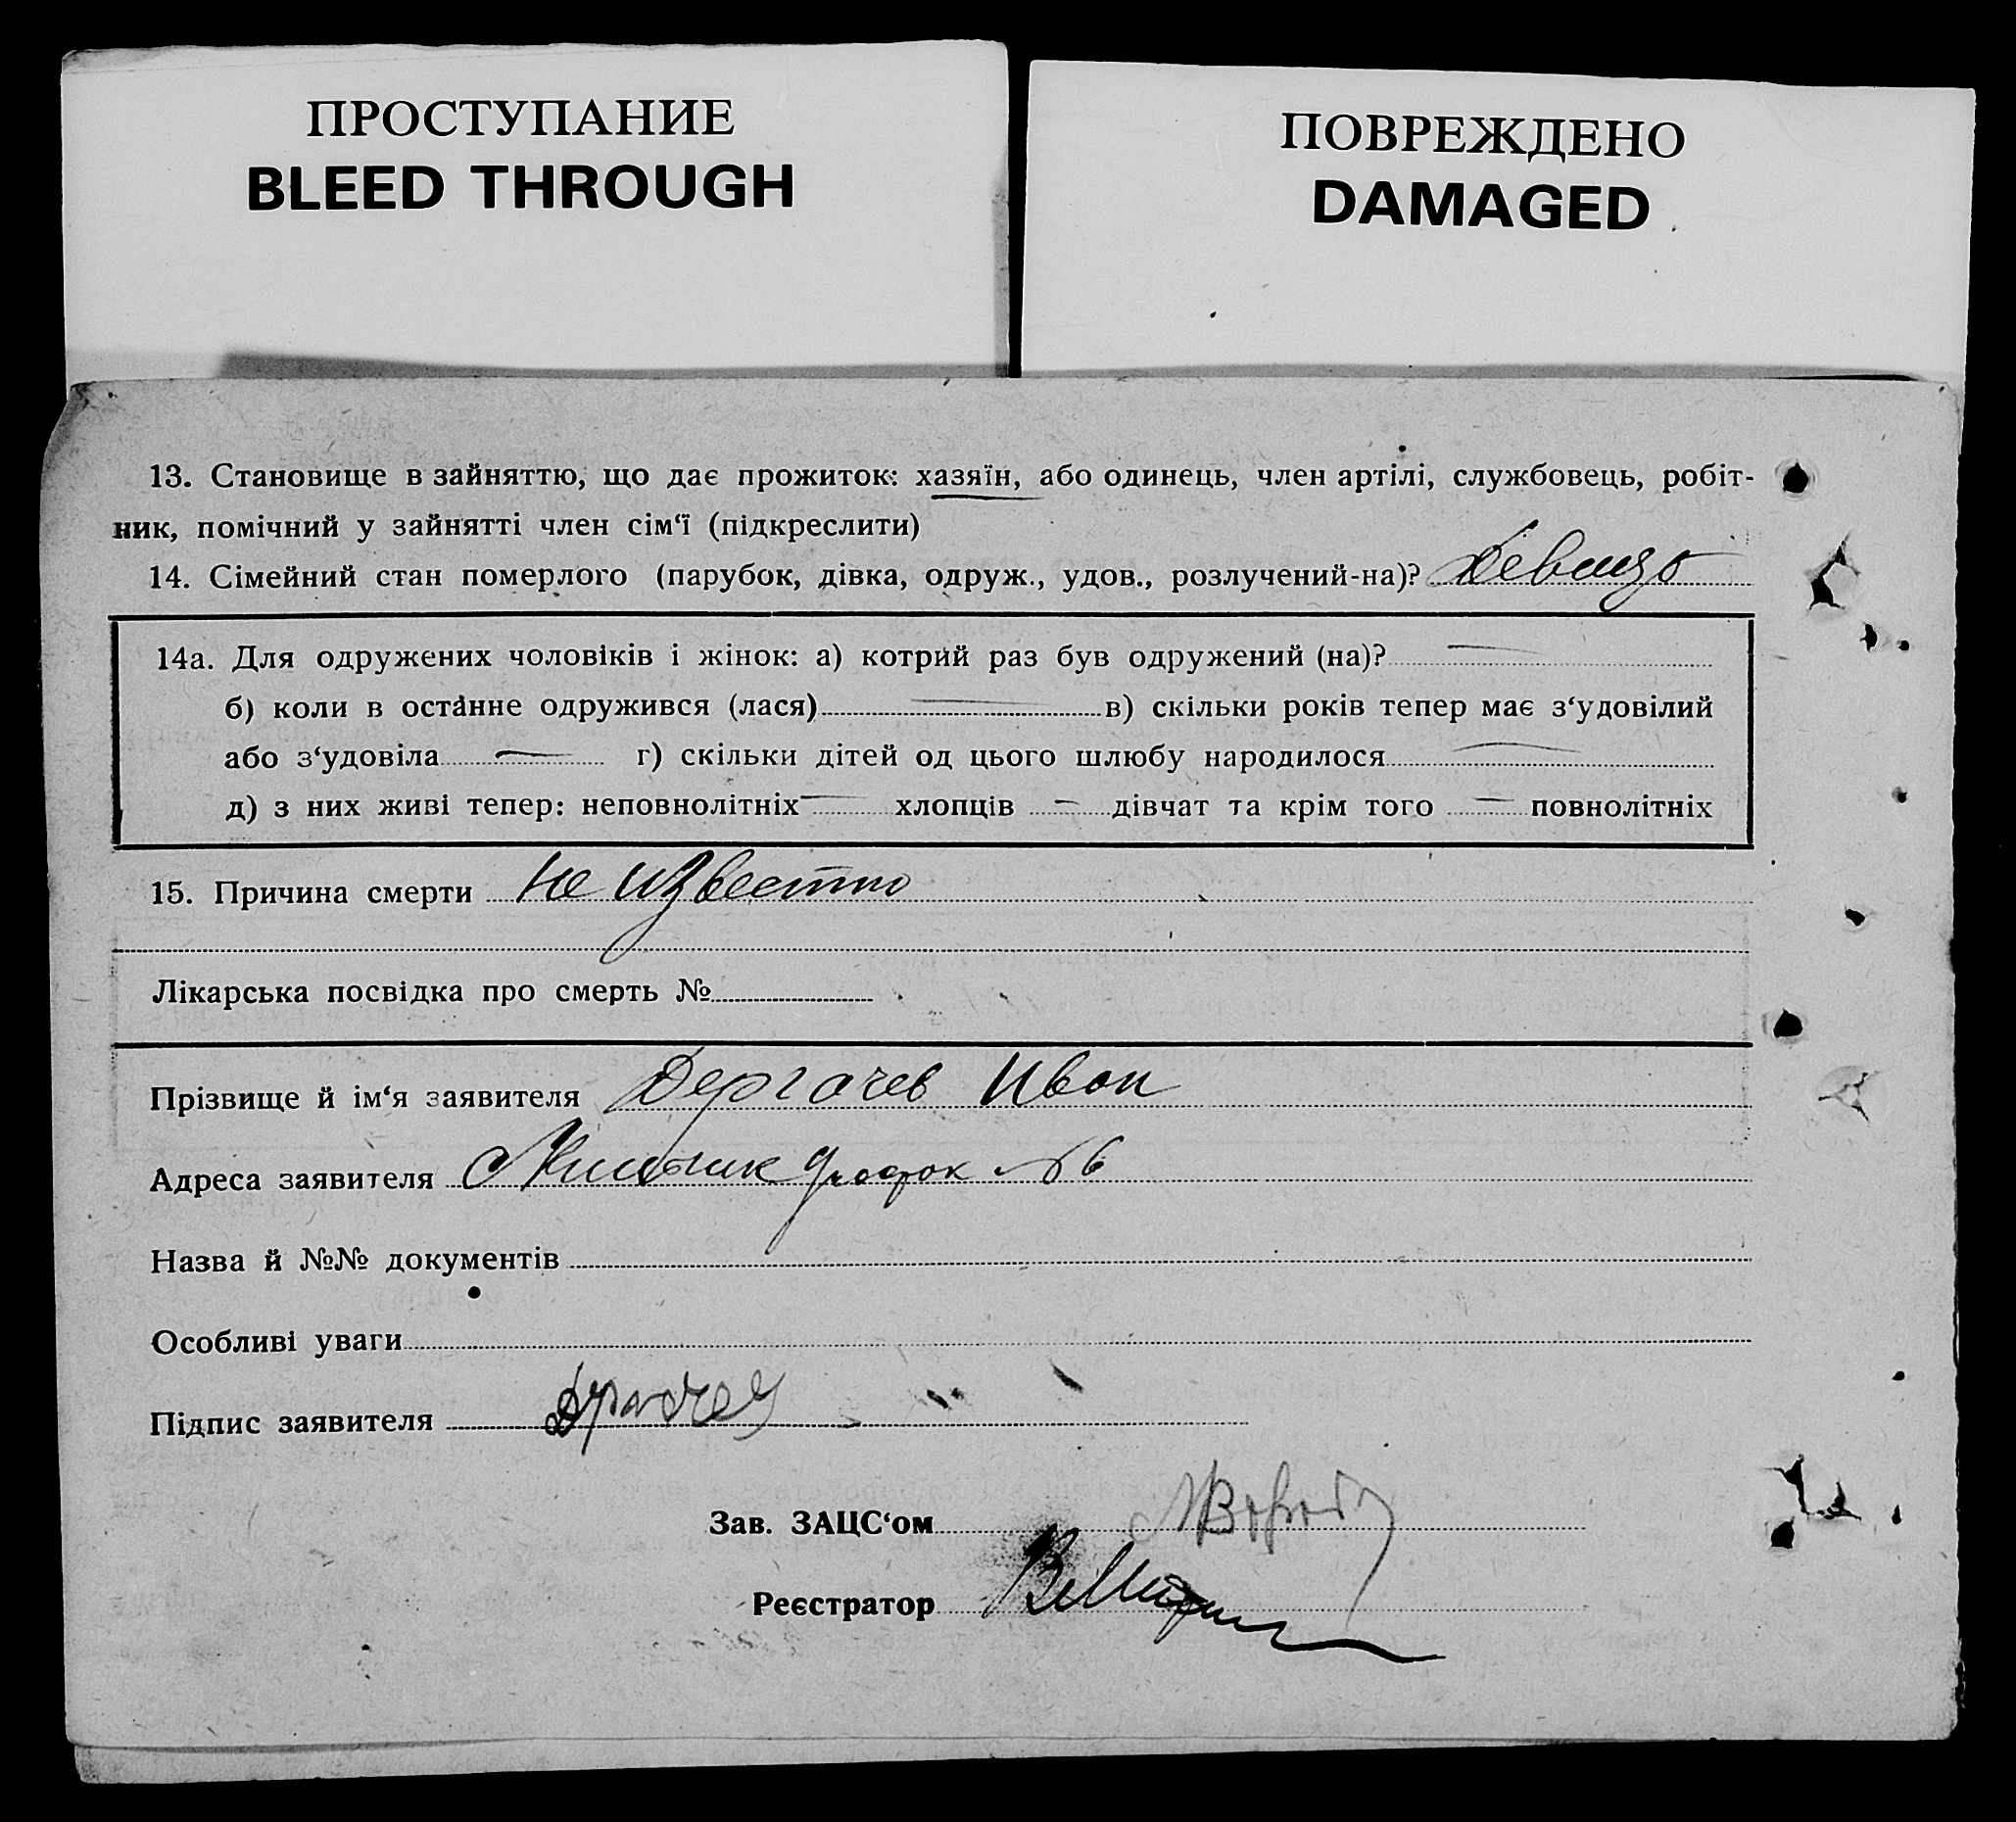 ПРОСТУПАНИЕ
BLEED THROUGH
ПОВРЕЖДЕНО
DAMAGED
13. Становище в зайняттю, що дає прожиток: хазяїн, або одинець, член артілі, службовець, робіт-
ник, помічний у зайнятті член сім‘ї (підкреслити)
14. Сімейний стан померлого (парубок, дівка, одруж., удов., розлучений-на)?
14а. Для одружених чоловіків і жінок: а) котрий раз був одружений (на)? —
б) коли в останне одружився (лася) — в) скільки років тепер має з‘удовілий
або з‘удовіла — г) скільки дітей од цього шлюбу народилося —
д) з них живі тепер: неповнолітніх — хлопців — дівчат та крім того — повнолітніх
15. Причина смерти Не известно
Лікарська посвідка про смерть №
Прізвище й ім‘я заявителя Дергачев Иван
Адреса заявителя № 6
Назва й №№ документів
Особливі уваги
Підпис заявителя
Зав. ЗАЦС‘ом
Реєстратор